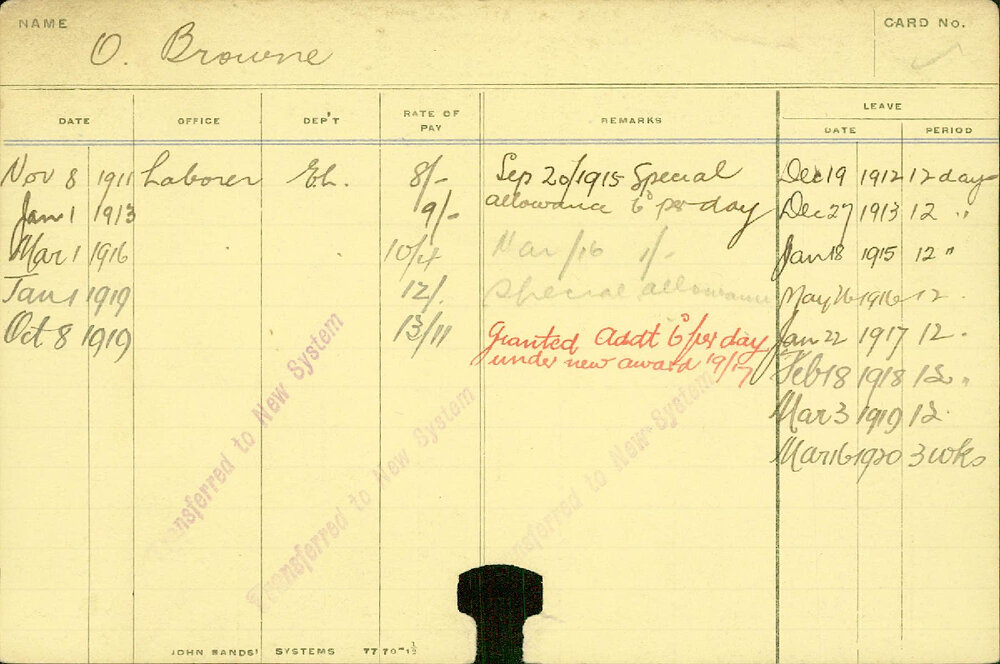 NAME
CARD No.
O. Browne
DATE OFFICE DEP'T RATE OF PAY REMARKS LEAVE
DATE PERIOD
Nov 8 1911 Laborer El. 8/- Sep 20/1915 Special Dec 19 1912 12 days
Jan 1 1913 9/- allowance 6d per day Dec 27 1913 12 "
Mar 1 1916 10/4 Mar/16 1/- Jan 18 1915 12 "
Jan 1 1919 12/. special allowance May 26 1916 12 .
Oct 8 1919 13/11 Granted Addt 6d/per day Jan 22 1917 12 .
under new award 19/17 Feb 18 1918 12 "
Mar 3 1919 12 .
Mar 16 1920 3 wks
Transferred to New System
Transferred to New System
Transferred to New System
JOHN SANDS' SYSTEMS 7770-1½